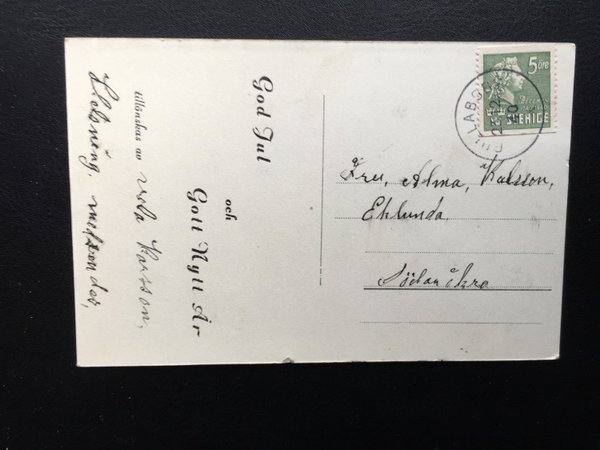 God Jul
och
Gott Nytt År
tillönskas av
Karsson,
Helsning,
5 öre
SVERIGE
Fru, Alma, Kalsson,
Eklunda
Söderåkra